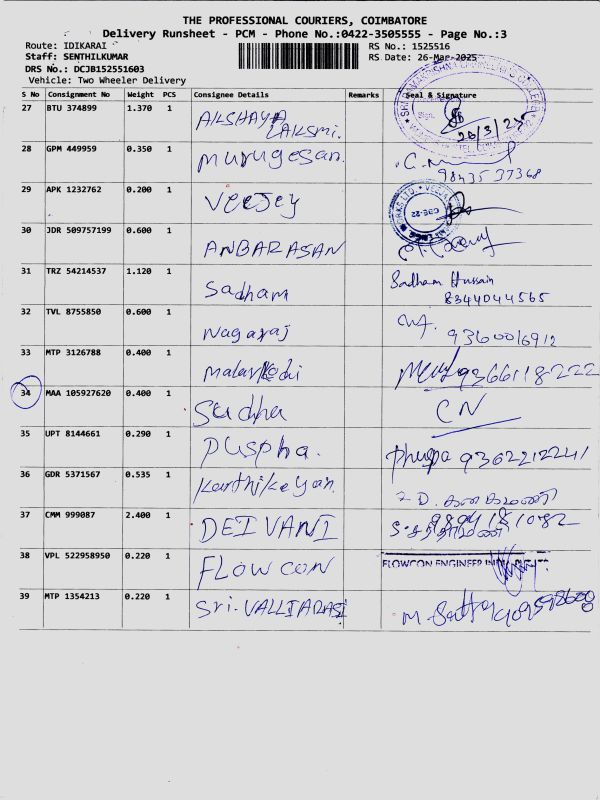 THE PROFESSIONAL COURIERS, COIMBATORE
Delivery Runsheet - PCM - Phone No.:0422-3505555 - Page No.:3
Route: IDIKARAI
RS No.: 1525516
Staff: SENTHILKUMAR
RS Date: 26-Mar-2025
DRS No.: DCJB152551603
Vehicle: Two Wheeler Delivery
S No Consignment No Weight PCS Consignee Details Remarks Seal & Signature
27 BTU 374899 1.370 1 AKSHAYA LAKSMI. 26/3/25
28 GPM 449959 0.350 1 murugesan. 9843537368
29 APK 1232762 0.200 1 VEEJEY
30 JDR 509757199 0.600 1 ANBARASAN
31 TRZ 54214537 1.120 1 Sadham Sadham Hussain
8344044565
32 TVL 8755850 0.600 1 Nagaraj 9360016912
33 MTP 3126788 0.400 1 9366118222
34 MAA 105927620 0.400 1 Sudha CN
35 UPT 8144661 0.290 1 Puspha. 9362212241
36 GDR 5371567 0.535 1 Karthikeyan.
37 CMM 999087 2.400 1 DEIVANI
38 VPL 522958950 0.220 1 FLOWCON FLOWCON ENGINEER
39 MTP 1354213 0.220 1 Sri.VALLIARASI